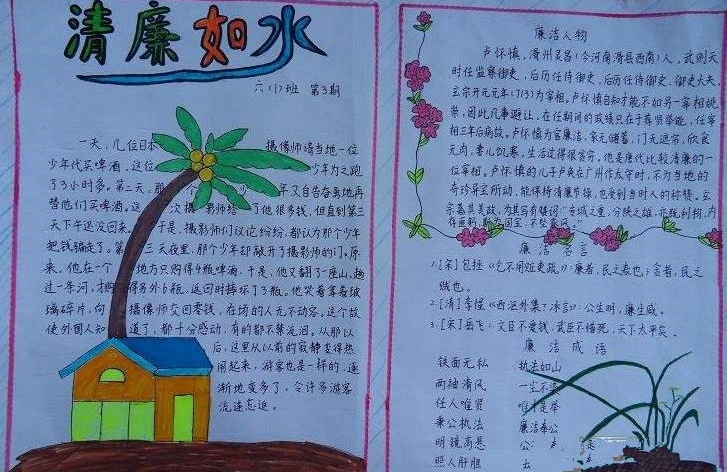 清廉如水
六(1)班 第3期
一天,几位日本 摄像师请当地一位
少年代买啤酒,这位 少年为之跑
了3小时多。第二天,那 个 少 年又自告奋勇地再
替他们买啤酒。这 次摄 影师给 了他很多钱,但直到第三
天下午还没回来。 于是,摄影师们议论纷纷,都认为那个少年
把钱骗走了。第 三天夜里,那个少年却敲开了摄影师的门。原
来,他在一个 地方只购得4瓶啤酒,于是,他又翻了一座山,趟
过一条河,才购 得另外6瓶,返回时摔坏了3瓶。他哭着拿着玻
璃碎片,向 摄像师交回零钱,在场的人无不动容。这个故
使外国人知 道了,都十分感动,有的都不禁流泪。从那以
后,这里从以前的寂静变得热
闹起来,游客也是一样的,逐
渐地变多了,令许多游客
流连忘返。
廉洁人物
卢怀慎,滑州灵昌(今河南滑县西南)人,武则天
时任监察御吏,后历任侍御吏,后历任侍御吏、御吏大夫
玄宗开元元年(713)为宰相。卢怀慎自知才能不如另一宰相姚
崇,因此凡事避让,在任期间的成绩只在于荐贤举能,任宰
相三年后病故。卢怀慎为官廉洁,家无储蓄,门无遮帘,饮食
无肉,妻儿饥寒,生活过得很贫穷。他是唐代比较清廉的一
位宰相。卢怀慎的儿子卢奂在广州作太守时,不为当地的
奇珍异宝所动,能保持清廉节操,也受到当时人的称赞。玄
宗嘉其美政,为其写有赞词:"专城之重,分陕之雄,
廉洁名言
1.[宋]包拯《乞不用赃吏疏》:廉者,民之表也;贪者,民之
贼也。
2.[清]李惺《西沤外集?冰言》:公生明,廉生威。
3.[宋]岳飞:文臣不爱钱,武臣不惜死,天下太平矣.
廉洁成语
铁面无私 执法如山
两袖清风 一尘不染
任人唯贤 唯才是举
秉公执法 廉洁奉公
明镜高悬 公
照人肝胆